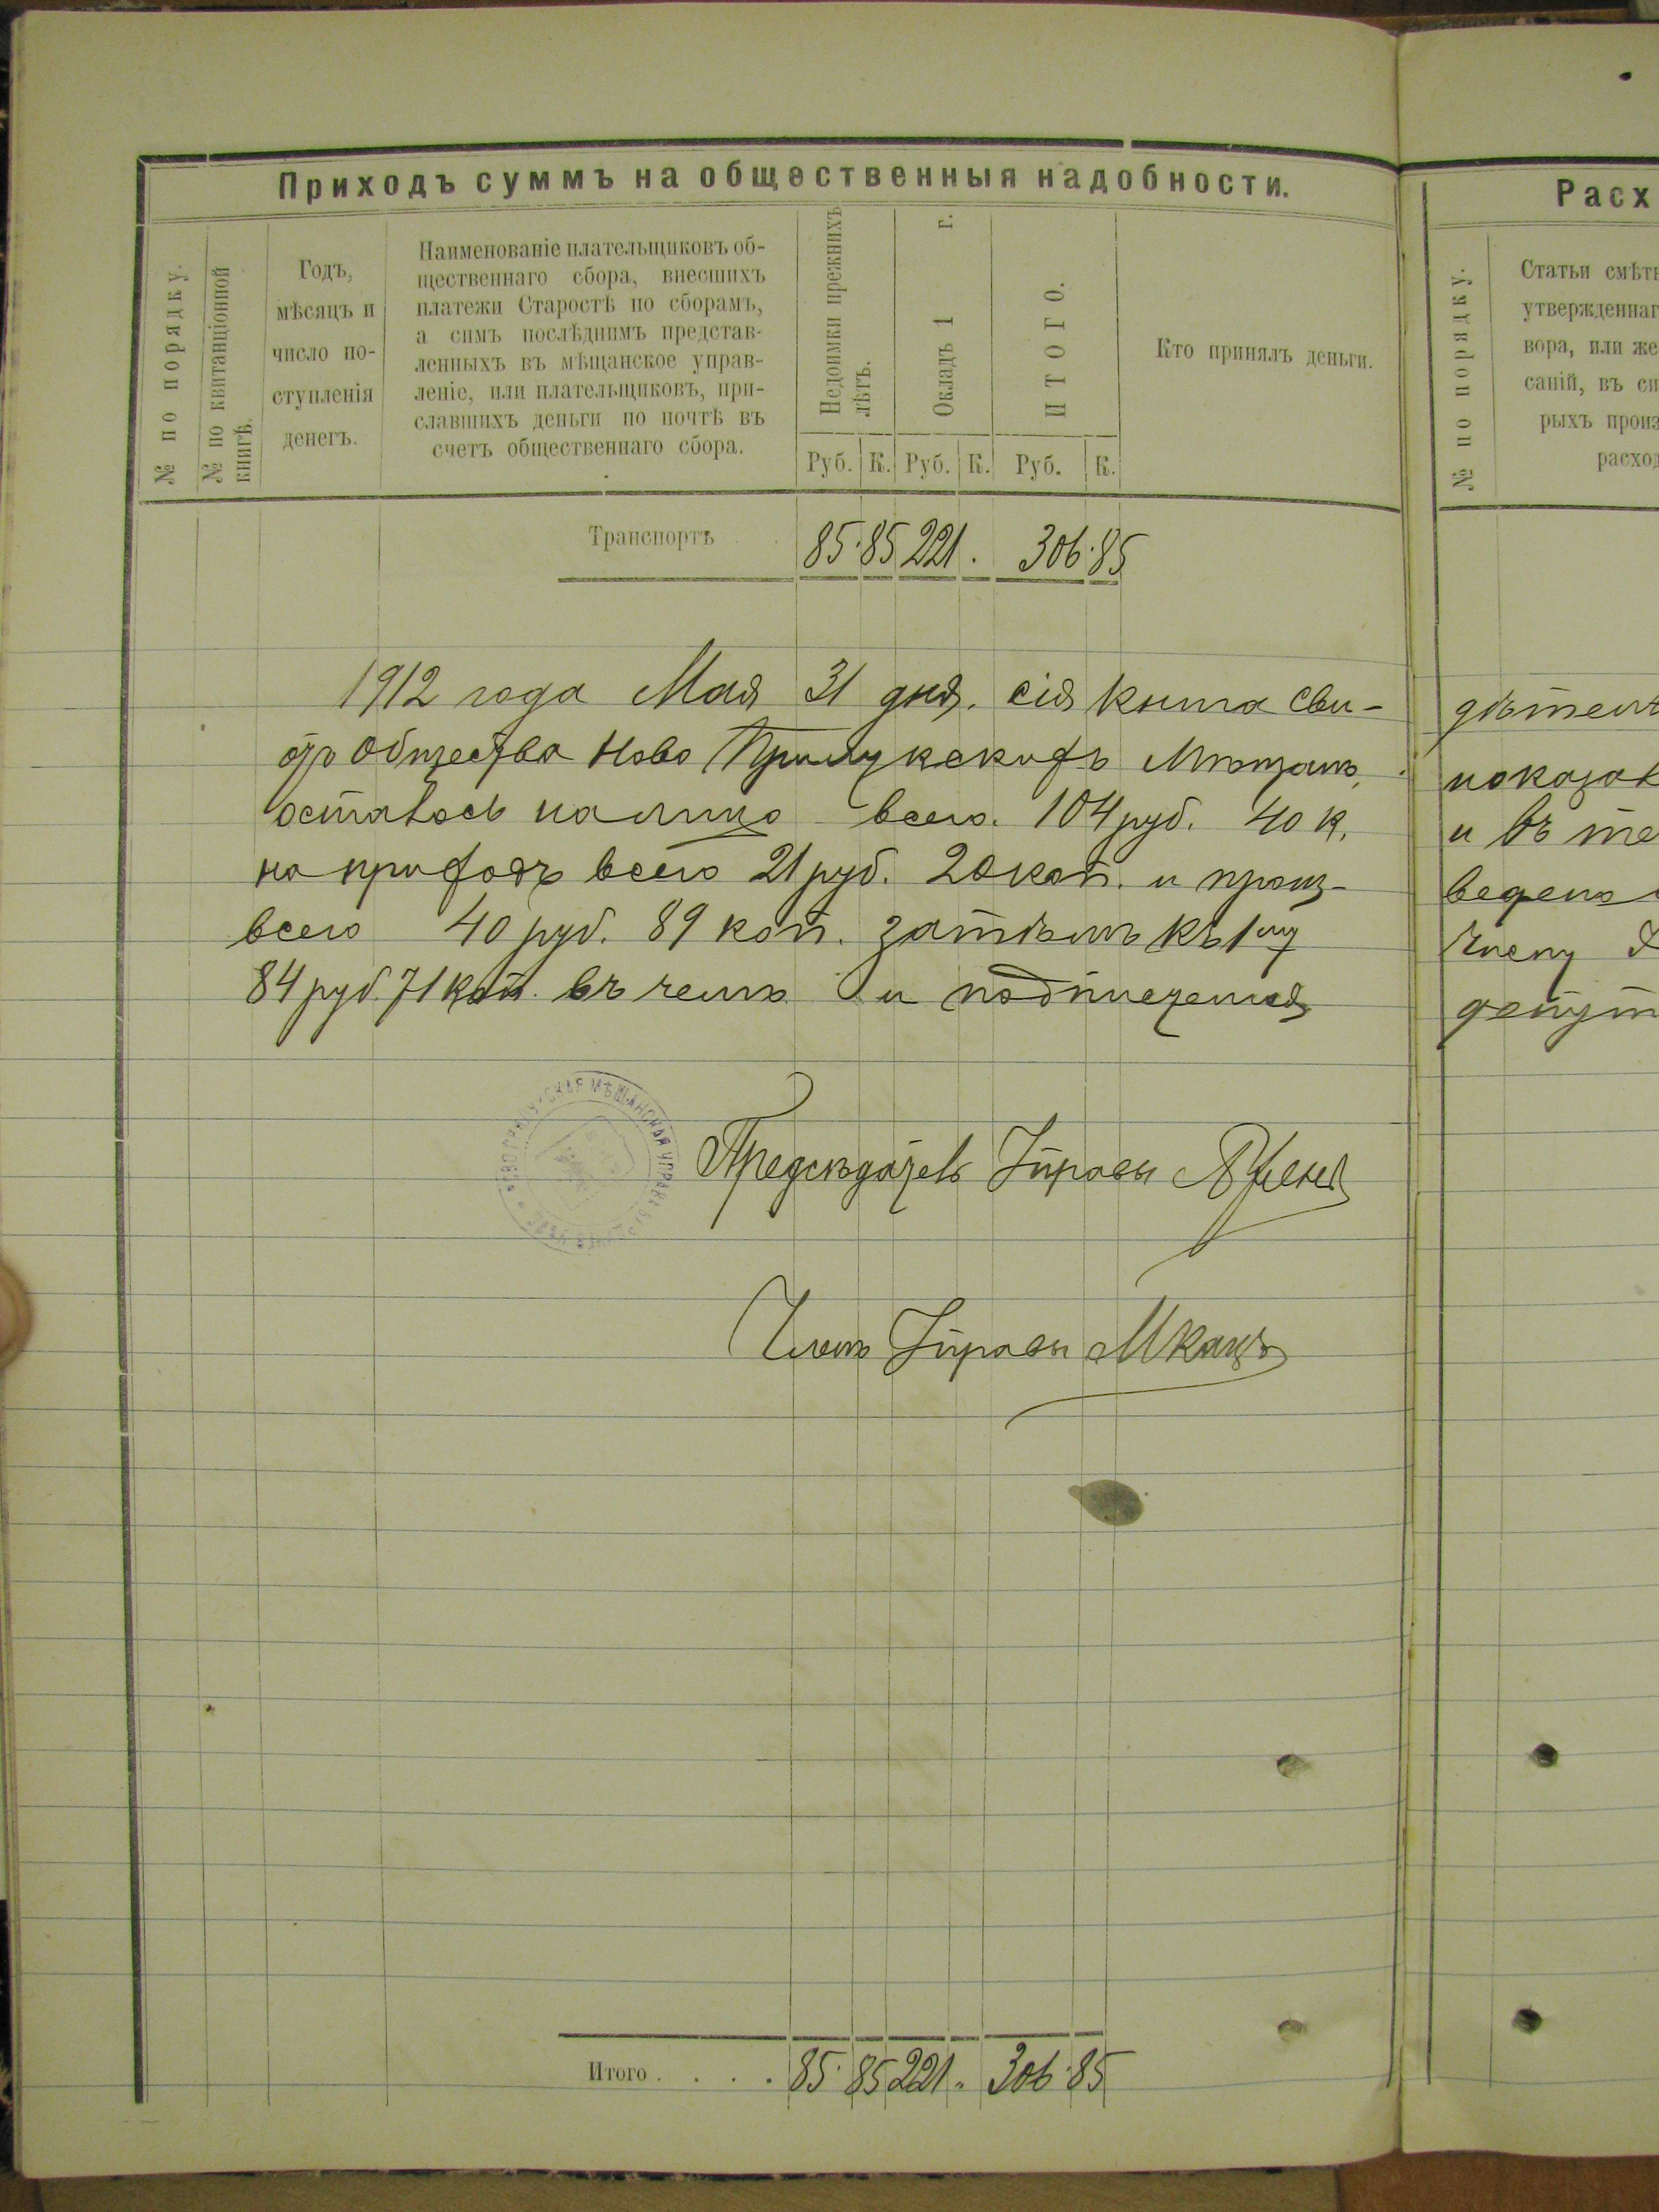 Приходъ суммъ на общественныя надобности.
№ по порядку.
№ по квитанціонной
книгѣ.
Годъ,
мѣсяцъ и
число по-
ступленія
денегъ.
Наименованіе плательщиковъ об-
щественнаго сбора, внесшихъ
платежи Старостѣ по сборамъ,
а симъ послѣднимъ представ-
ленныхъ въ мѣщанское управ-
леніе, или плательщиковъ, при-
славшихъ деньги по почтѣ въ
счетъ общественнаго сбора.
Недоимки прежнихъ
лѣтъ.
Окладъ 1 г.
ИТОГО.
Кто принялъ деньги.
Руб. К. Руб. К. Руб. К.
Транспортъ 85 85 221 . 306 85
1912 года Мая 31 дня. сія книга сви-
общества Ново Прилукскихъ Мѣщанъ
осталось на лицо всего. 104 руб. 40 к.
на приходъ всего 21 руб. 20 коп. и произ-
всего 40 руб. 89 коп. затѣмъ къ 1му
84 руб. 71 коп. въ чемъ и подписуемся
МѢЩАНСКАЯ УПРАВА
Предсѣдатель Управы
Членъ Управы МКацъ
Итого . . . . 85 85 221 " 306 85
Расх
№ по порядку.
Статьи смѣты
утвержденнаг
вора, или же
саній, въ си
рыхъ произ
расход
дѣтель
показан
и въ те
ведено
члену
депут